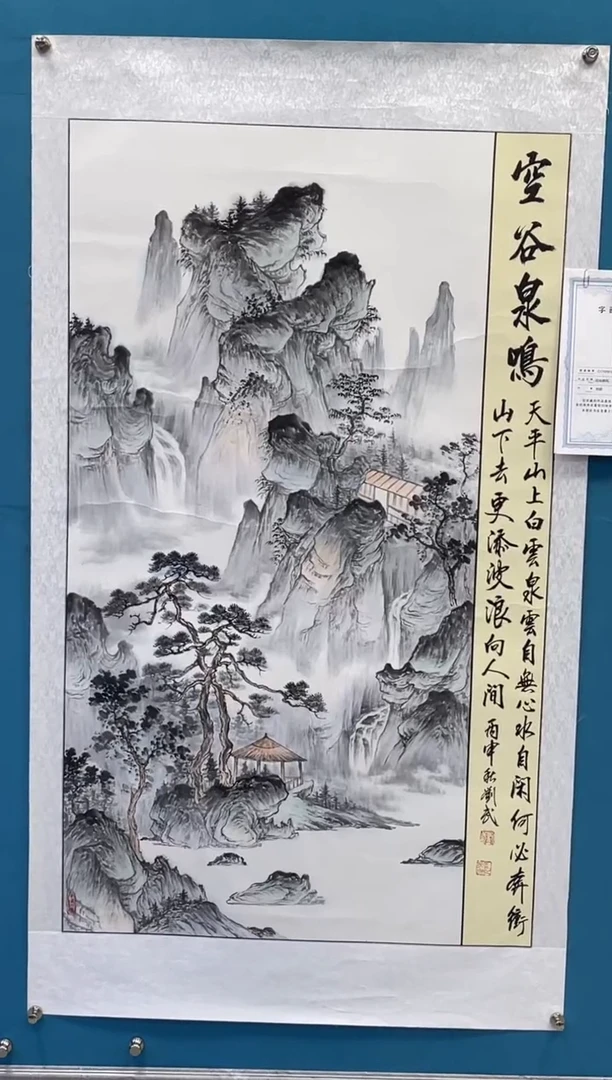 空谷泉鳴
天平山上白雲泉雲自無心水自闲何必奔衝
山下去更添波浪向人间丙申秋劉武